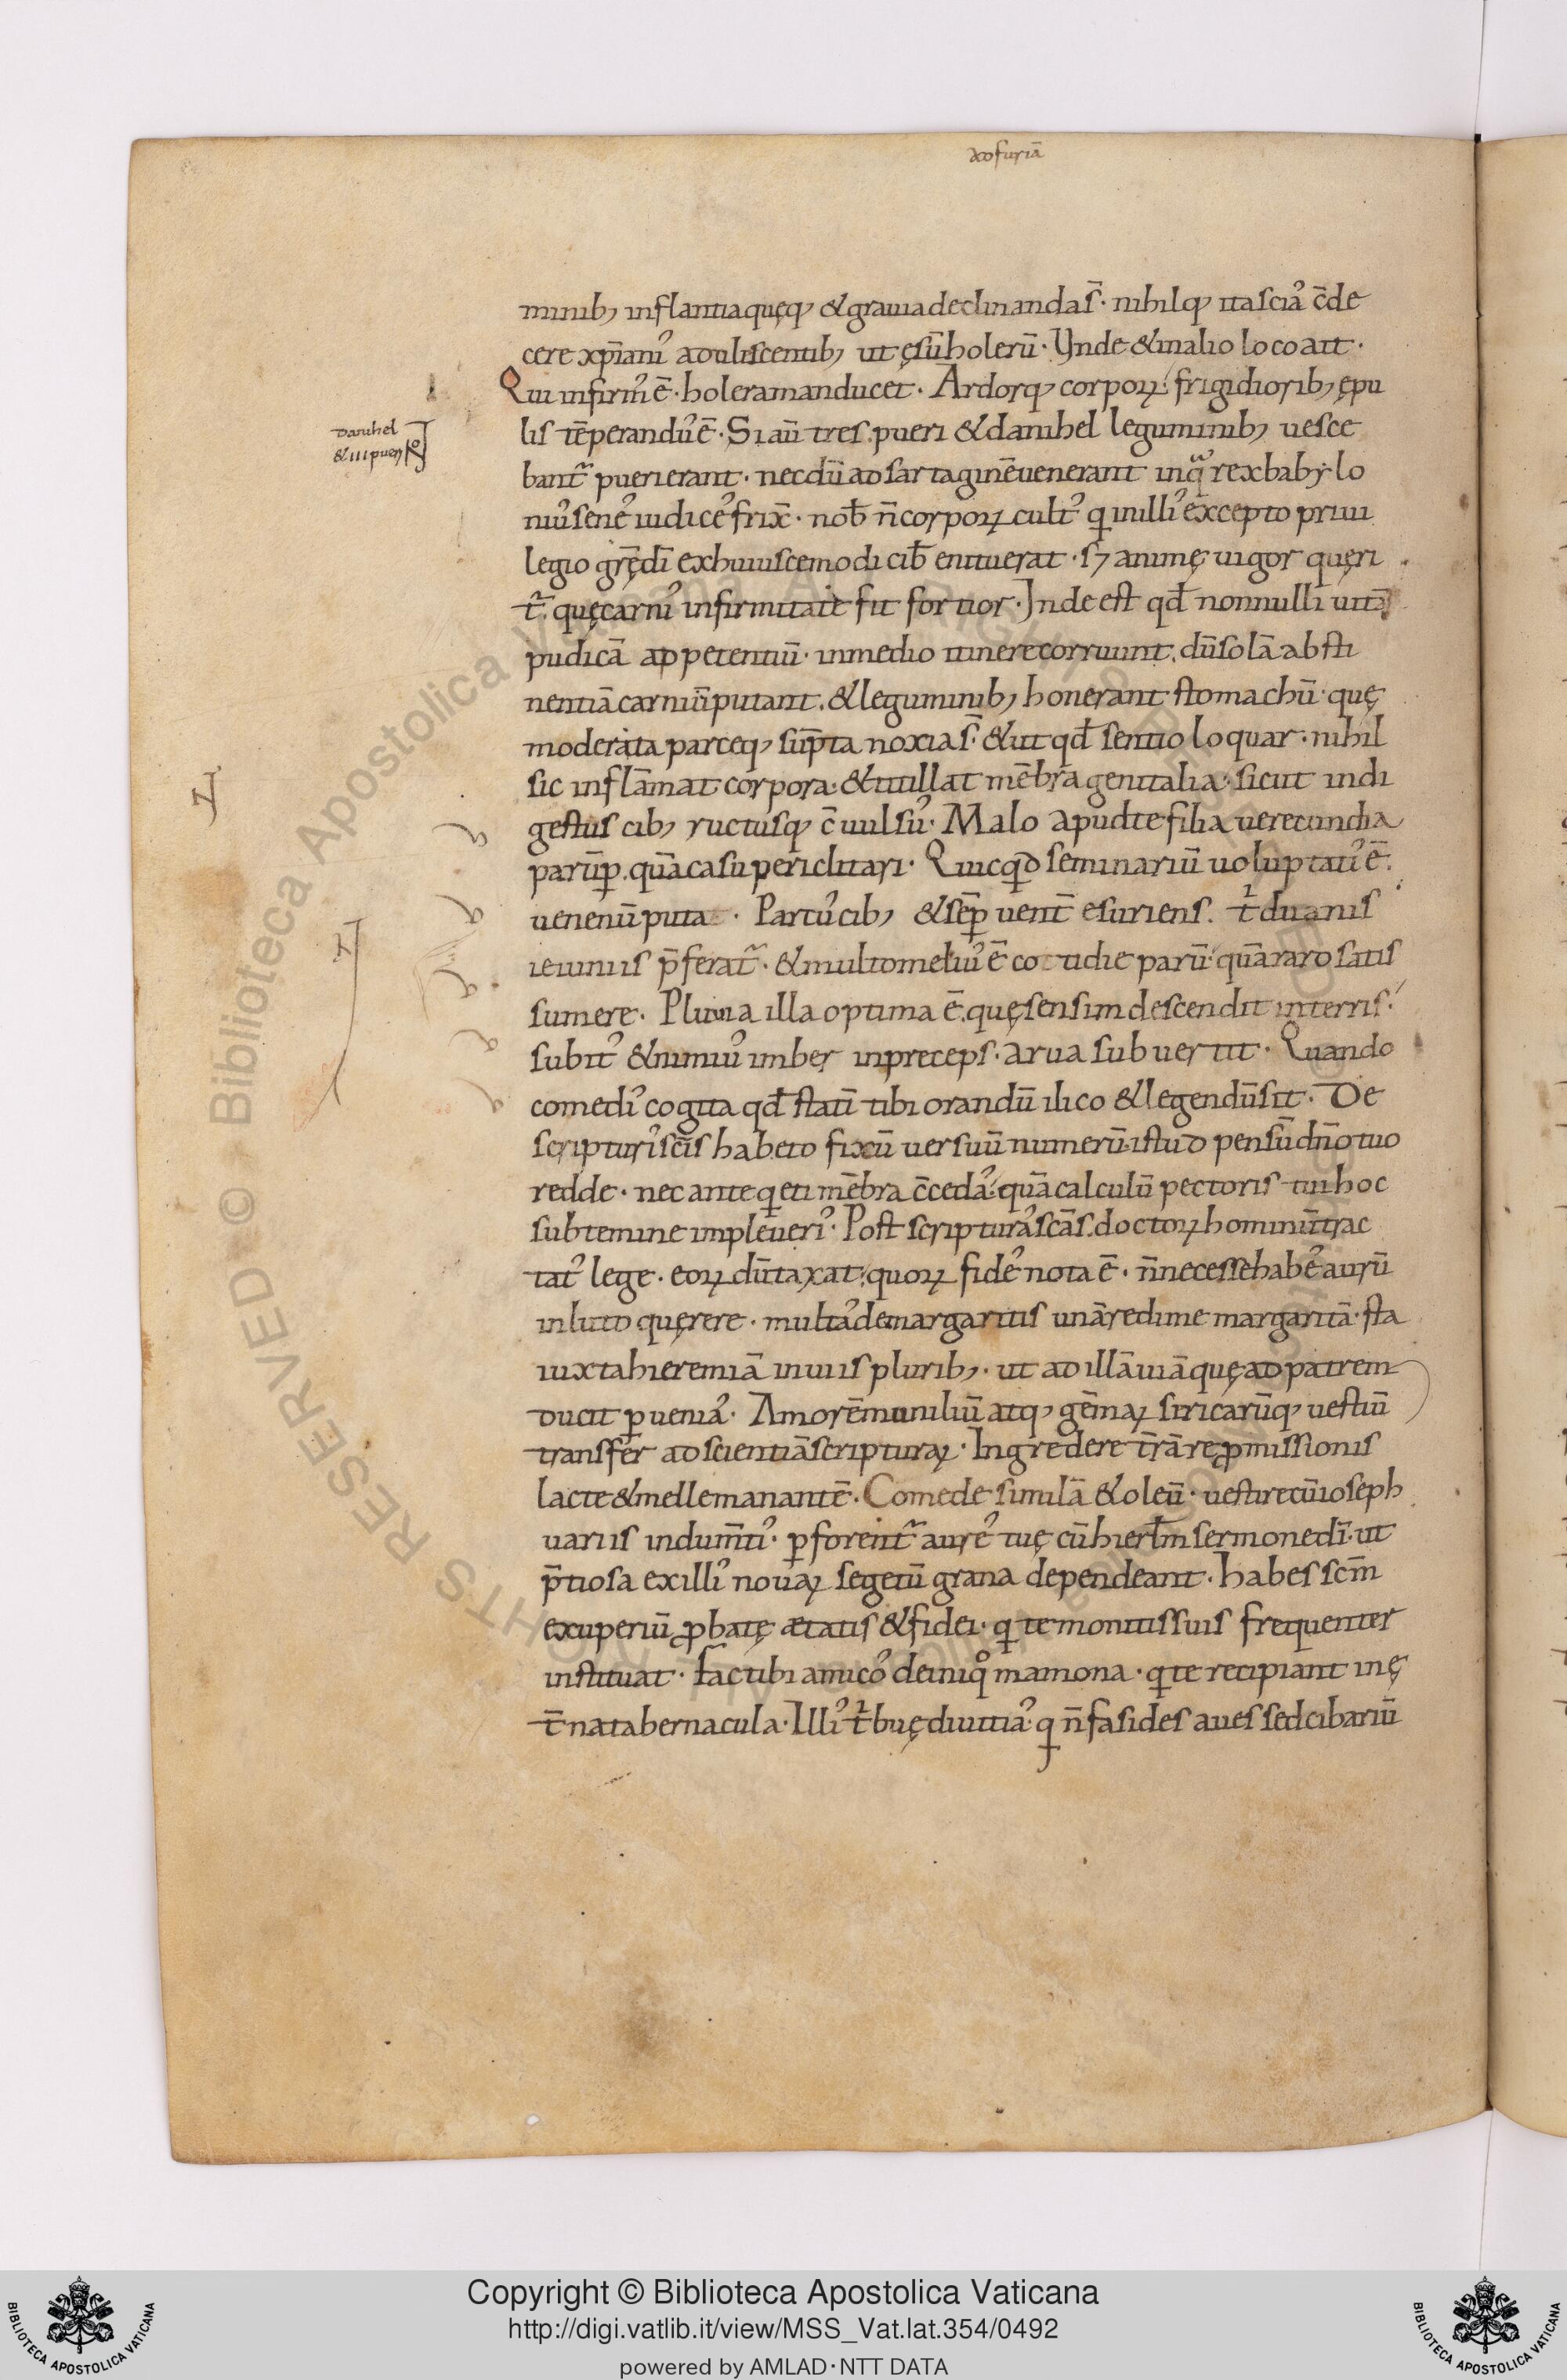 ad furiā
minib; inflantia quęq; & grauia declinanda s̄. nihilq; ita scia᾽ c̄de
cere xp̄iani᾽ adulescentib; ut ęsū holerū. Vnde & in alio loco ait.
Qui infirm᾽ ē. holera manducet. Ardorq; corpoꝝ frigidiorib; ępu
lis tēperandu᾽ ē. Si aū tres pueri & danihel leguminib; uesce
bant᷑ pueri erant. necdū ad sartaginē uenerant in qͣ rex babylo
niu᾽ sene᾽ iudice᾽ frix̄. nob̄ n̄ corpoꝝ cult᾽ qͥ in illi᾽ excepto priui
legio grę̄ dī ex huiuscemodi cib̄ enituerat. s; animę uigor quęri
t᷑. quę carni᾽ infirmitate fit fortior. Inde est qđ nonnulli uitā
pudicā appetentiū. in medio itinere corruunt. dū solā absti
nentiā carniū putant. & leguminib; honerant stomachū. quę
moderata parceq; sūpta noxia s̄. & ut qđ sentio loquar. nihil
sic inflāmat corpora. & titillat mēbra genitalia. sicut indi
gestus cib; ructusq; c̄uulsu᾽. Malo apud te filia uerecundia
parūp. quā causa periclitari. Quicqͥd seminariū uoluptatu᾽ ē.
uenenū puta. Parcu᾽ cib; & sēp uent̄ esuriens. tͥduanis
ieiuniis p̄ferat᷑. & multo meliu᾽ ē cotidie parū. quā raro satis
sumere. Pluuia illa optima ē. quę sensim descendit in terris.
subit᾽ & nimiu᾽ imber in preceps. arua subuertit. Quando
comedi᾽ cogita qđ statī tibi orandū ilico & legendū sit. De
scripturi᾽ sc̄is habeto fixū uersuū numerū. istud pensū dn̄o tuo
redde. nec ante qͥeti mēbra c̄ceda᾽. quā calculū pectoris tui hoc
subtemine impleueri᾽. Post scriptura᾽ sc̄as. doctoꝝ hominū trac
tat᾽ lege. eoꝝ dūtaxat. quoꝝ fide᾽ nota ē. n̄ necesse habe᾽ aurū
in luto quęrere. multa᾽ de margaritis unā redime margaritā. sta
iuxta hieremiā in uiis plurib;. ut ad illā uiā quę ad patrem
ducit ꝑuenia᾽. Amorē muniliū atq; gēmaꝝ siricarūq; uestiū
transfer ad scientiā scripturaꝝ. Ingredere t̄rā repꝓmissionis
lacte & melle manantē. Comede similā & oleū. uestire cū ioseph
uariis indum̄ti᾽. ꝑforent᷑ aure᾽ tuę cū hierłm sermone dī. ut
p̄tiosa ex illi᾽ nouaꝝ segetū grana dependeant. Habes sc̄m
exuperiū ꝓbatę ætatis & fidei. qͥ te monitis suis frequenter
instituat. Fac tibi amico᾽ de iniqͦ mamona. qͥ te recipiant in ę
t̄na tabernacula. Illi᾽ tͥbuę diuitia᾽. qͥ n̄ fasides aues sed cibariū
danihel
& iii pueri
Copyright © Biblioteca Apostolica Vaticana
http://digi.vatlib.it/view/MSS_Vat.lat.354/0492
powered by AMLAD·NTT DATA